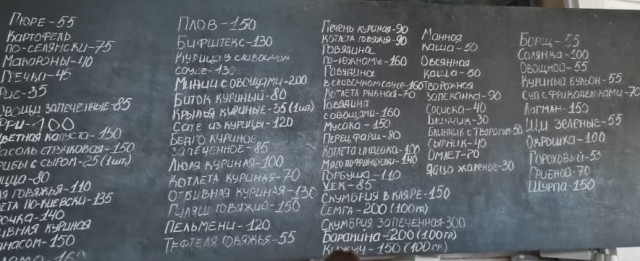 Пюре-55
Картофель
по-селянски-75
Макароны-40
Гречка-45
Рис-35
Овощи запеченные-85
Фри-100
Цветная капуста-150
Фасоль стручковая-150
Грибы с сыром-25(1шт.)
-80
говяжья-110
по-киевски-135
-140
куриная
ананасом-150
Плов-150
Бифштекс-130
Курица в сливочном
соусе-130
Мини с овощами-200
Биток куриный-80
Крылья куриные-35(1шт)
Сате из курицы-120
Бедро куриное
запеченное-85
Люля куриная-100
Котлета куриная-70
Отбивная куриная-130
Гуляш говяжий-150
Пельмени-120
Тефтеля говяжья-55
Печень куриная-90
Котлета говяжья-90
Говядина
по-южному-160
Говядина
в сливочном соусе-160
Котлета рыбная-70
Говядина
с овощами-160
Мусака-150
Перец фарш-80
Котлета индейка-100
Мясо по французски-140
Горбуша-110
Хек-85
Скумбрия в кляре-150
Семга-200(100гр)
Скумбрия запеченная-300
Баранина-200(100гр)
Кижуч-150(100гр.)
Манная
каша-50
Овсянная
каша-50
Творожная
запеканка-90
Сосиска-40
Блинчик-30
Блинчик с творогом-50
Сырник-40
Омлет-70
Яйцо жаленое-30
Борщ-55
Солянка-100
Овощной-55
Куриный бульон-55
Суп с фрикадельками-70
Лагман-150
Щи зеленые-55
Окрошка-100
Гороховый-55
Грибной-70
Шурпа-150